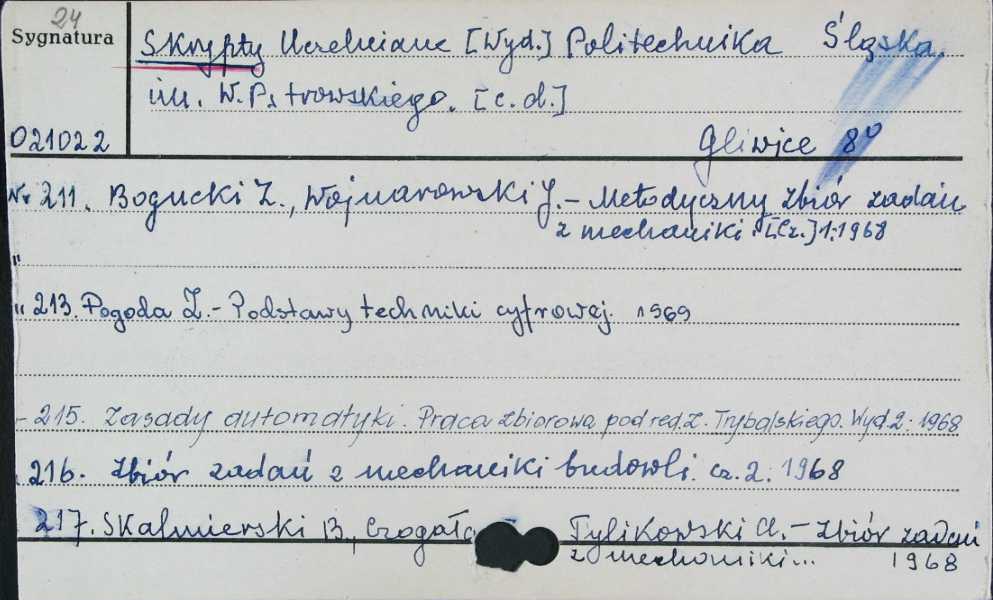 24
Sygnatura
Skrypty Uczelniane [Wyd.] Politechnika Śląska
im. W. Pstrowskiego. [c.d.]
021022
Gliwice 8°
Nr 211. Bogucki Z., Wojnarowski J. – Metodyczny zbiór zadań
z mechaniki. [Cz.] 1: 1968
"
" 213. Pogoda Z. – Podstawy techniki cyfrowej. 1969
- 215. Zasady automatyki. Praca zbiorowa pod red. Z. Trybalskiego. Wyd. 2: 1968
216. Zbiór zadań z mechaniki budowli. cz. 2: 1968
217. Skalmierski B., Czogała Tylikowski A. – Zbiór zadań
z mechaniki... 1968